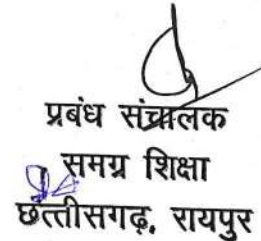 प्रबंध संचालक
समग्र शिक्षा
छत्तीसगढ़, रायपुर